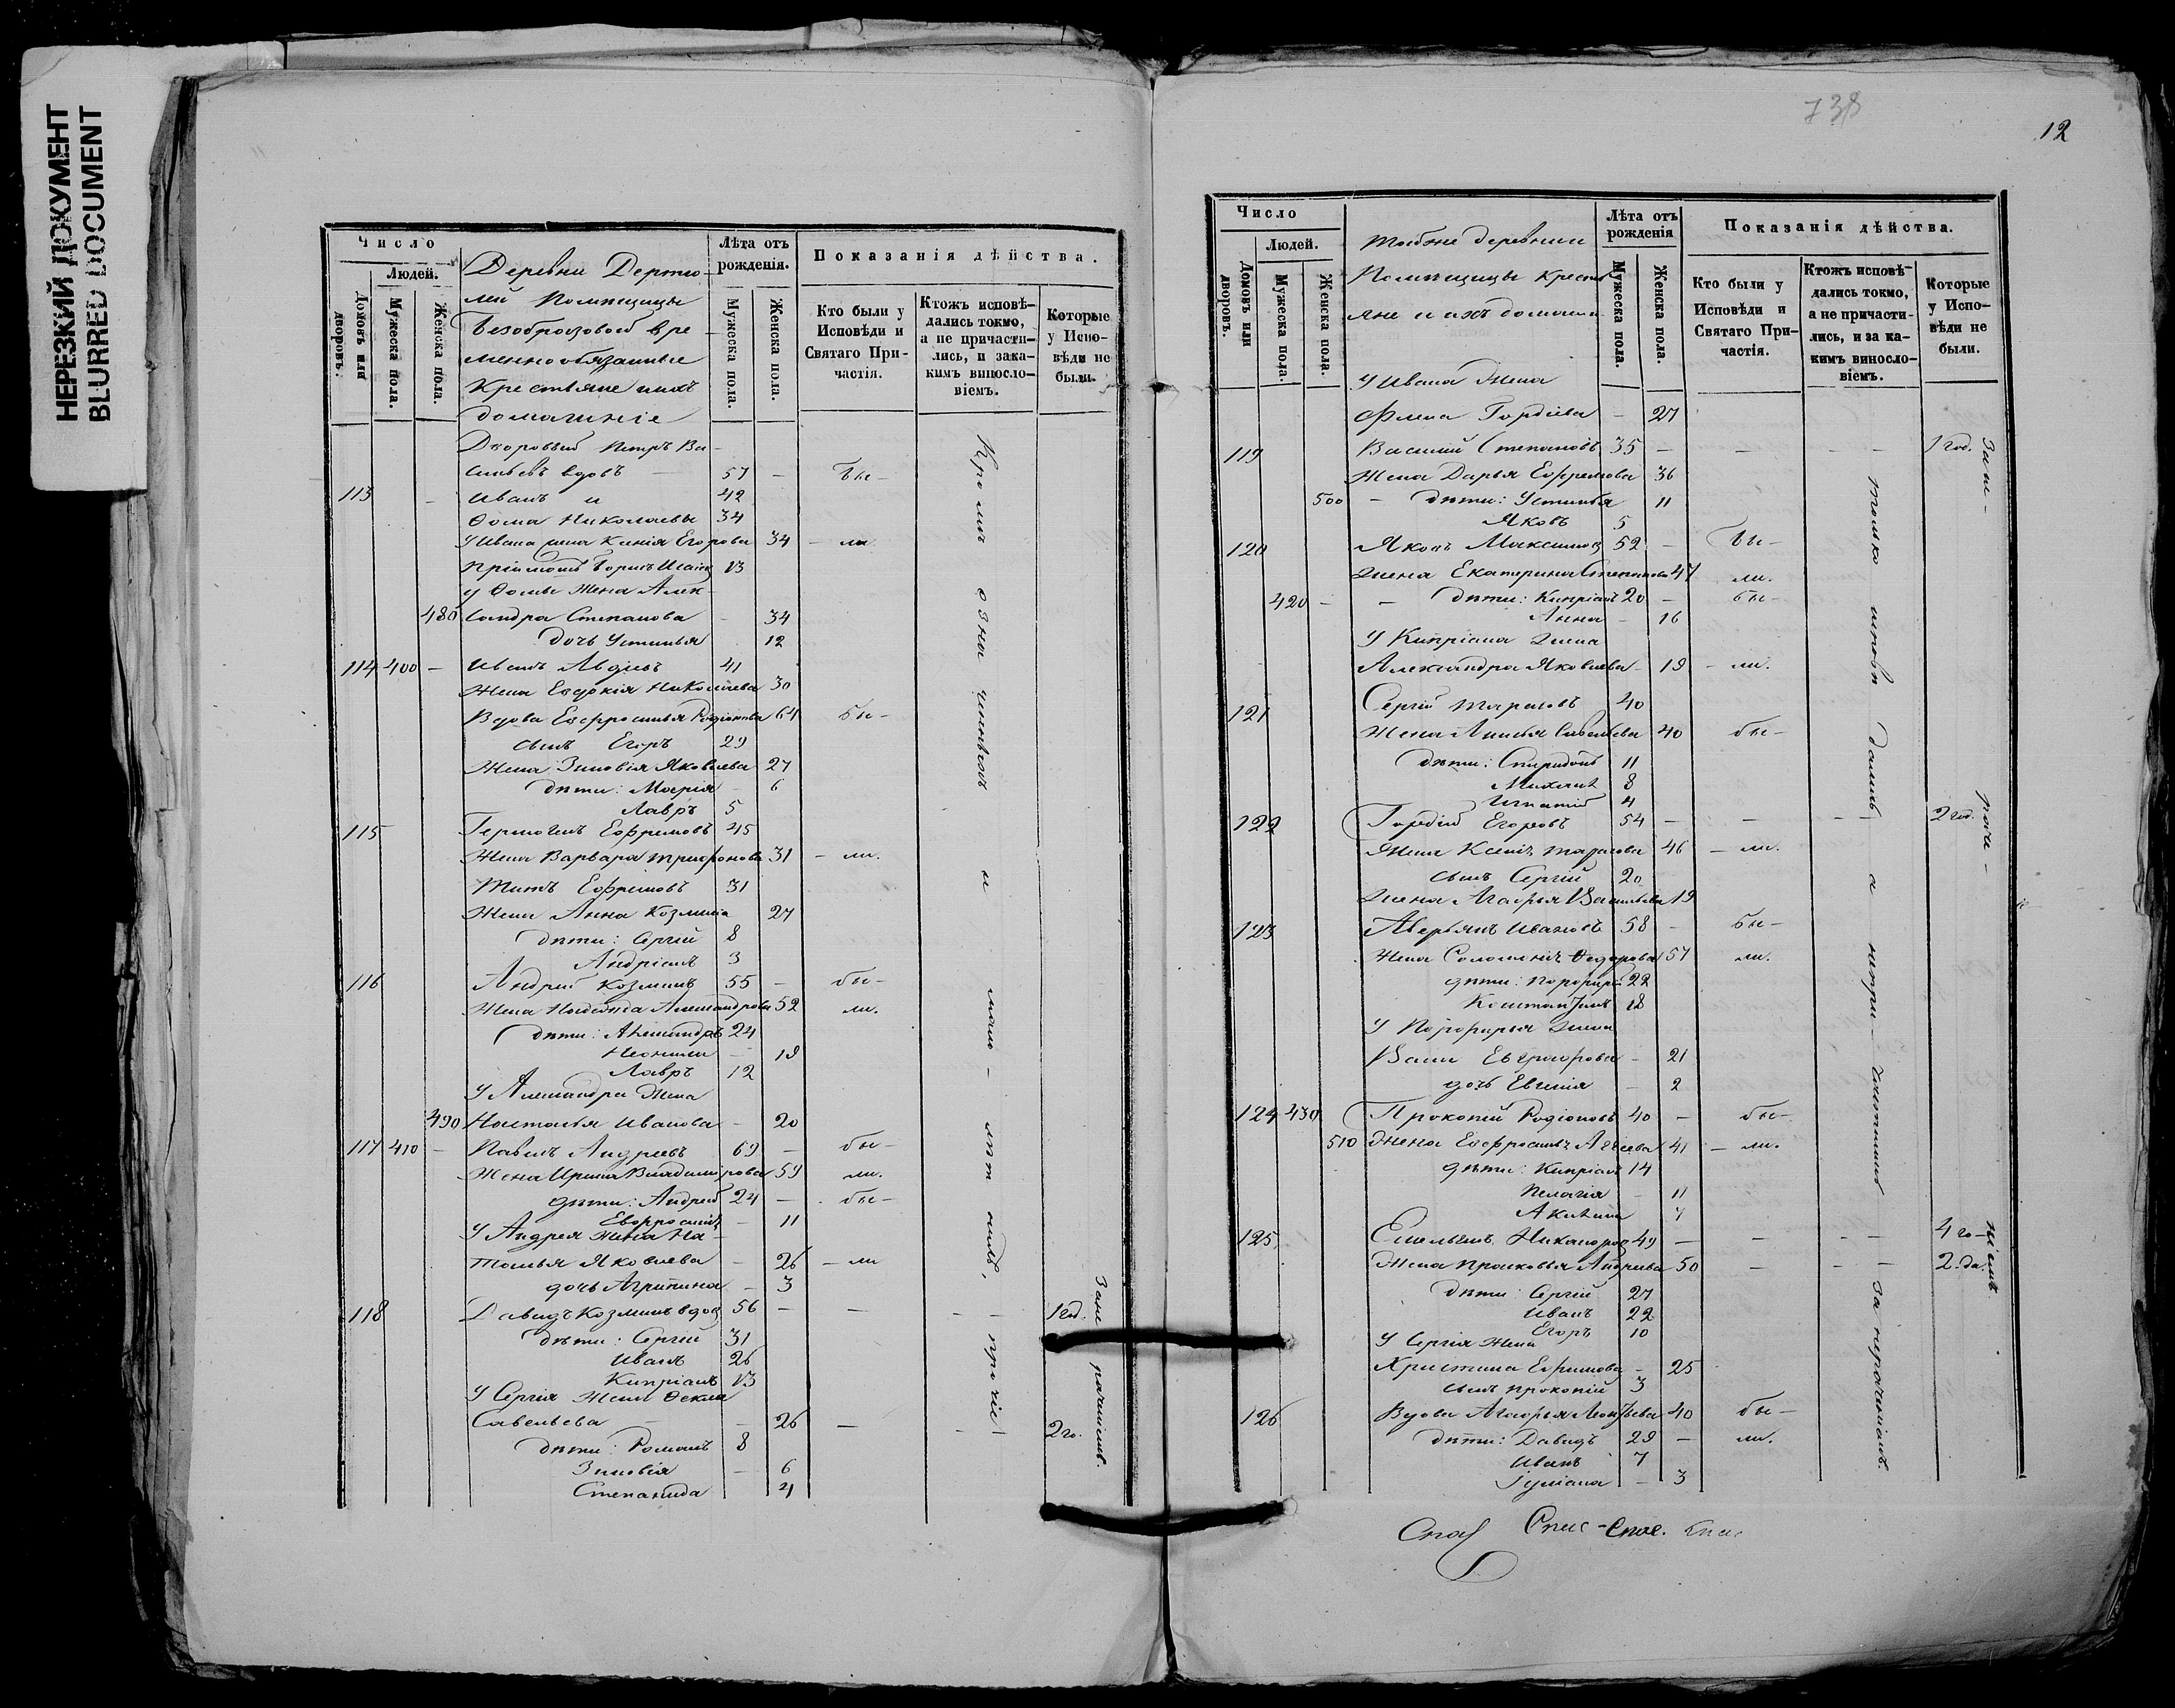 НЕРЕЗКИЙ ДОКУМЕНТ
BLURRED DOCUMENT
Число
Людей.
Домовъ или дворовъ.
Мужеска пола.
Женска пола.
Деревни Дертю-
лей Помѣщицы
Безобразовой вре-
менно обязанные
Крестьяне и ихъ
домашніе
Лѣта отъ рожденія.
Мужеска пола.
Женска пола.
Показанія дѣйства.
Кто были у Исповѣди и Святаго Причастія.
Ктожъ исповѣ-
дались токмо,
а не причасти-
лись, и зака-
кимъ виносло-
віемъ.
Которые
у Испо-
вѣди не
были.
Дворовый Петръ Ва-
сильевъ вдовъ 57 — бы-
113 — Иванъ и 42
Ѳома Николаевы 34
У Ивана жена Ксенія Егорова 34 — ли
Пріимышъ Борисъ 13
у Ѳомы жена Алек-
480 сандра Степанова - 34
дочь Устинья 12
114 400 — Иванъ Авдіевъ 41
Жена Евдокія Николаева 30
Вдова Евфросинья Родіонова 64 бы-
сынъ Егоръ 29
Жена Зиновія Яковлева 27
дѣти: Марія - 6
Лавръ 5
115 Гермогенъ Ефремовъ 45
Жена Варвара Трифонова 31 — ли.
Титъ Ефремовъ 31
Жена Анна Козмина 27
дѣти: Сергій 8
Андріанъ 3
116 Андрей Козминъ 55 — бы-
Жена Надежда Александрова 52 ли.
дѣти: Александръ 24
Неонила — 19
Лавръ 12
У Александра жена
490 Наталья Иванова - 20
117 410 — Павелъ Андреевъ 69 — бы-
Жена Ирина Владимірова 59 ли.
дѣти: Андрей 24 — бы-
Евфросинія — 11
У Андрея жена На-
талья Яковлева — 26 — ли
дочь Агрипина — 3
118 Давидъ Козминъ вдов 56 — — — 1 год.
дѣти: Сергій 31
Иванъ 26
Кипріанъ 13
У Сергія жена Ѳекла
Савельева — 26 — - 2 го.
дѣти: Романъ 8
Зиновія — 6
Степанида 4
Кромѣ означенныхъ и мало- лѣтнихъ, прочіе
Зане рачініемъ.
738
12
Число
Людей.
Домовъ или дворовъ.
Мужеска пола.
Женска пола.
Тойже деревни
Помѣщицы кресть-
яне и ихъ домашн
Лѣта отъ рожденія
Мужеска пола.
Женска пола.
Показанія дѣйства.
Кто были у Исповѣди и Святаго Причастія.
Ктожъ исповѣ-
дались токмо,
а не причасти-
лись, и за ка-
кимъ виносло-
віемъ.
Которые
у Испо-
вѣди не
были.
У Ивана жена
Флена Гордіева - 27
119 Василій Степановъ 35 — — — — 1 год.
Жена Дарья Ефремова 36
500 — дѣти: Устинья 11
Яковъ 5
120 Яковъ Максимов 52 — бы-
Жена Екатерина Степанова 47 ли.
420 — — дѣти: Кипріанъ 20 — бы-
Анна — 16
У Кипріана жена
Александра Яковлева - 19 — ли.
121 Сергій Тарасовъ 40
Жена Анисья Савельева 40 бы-
дѣти: Спиридонъ 11
Михаилъ 8
Игнатій 4
122 Гордій Егоровъ 54 — — — - 2 год.
Жена Ксенія Тарасова 46 — ли.
сынъ Сергій 20
Жена Агафья Васильева 19
123 Аверьянъ Ивановъ 58 - бы-
Жена Соломонія Ѳедорова 57 ли.
дѣти: Порфирій 22
Константинъ 18
У Порфирья жена
- 21
дочь Евгенія — 2
124 430 Прокопій Родіоновъ 40 — бы-
510 Жена Евфросинья 41 — ли.
дѣти: Кипріанъ 14
Пелагія - 11
Акилина 7
125 Емельянъ Никаноров 49 — — — - 4 го-
Жена Прасковья Андреева 50 — — — 2.да.
дѣти: Сергій 27
Иванъ 22
Егоръ 10
У Сергія жена
Христина Ефимова - 25
сынъ Прокопій 3
126 Вдова Агафья Леонтьева 40 бы-
дѣти: Давидъ 29 — ли.
Иванъ 7
Іуліана — 3
только исповѣ дались а непри- частились за нерачініемъ.
Зане- раче- ніемъ.
Спас Спас- Спас. Спас